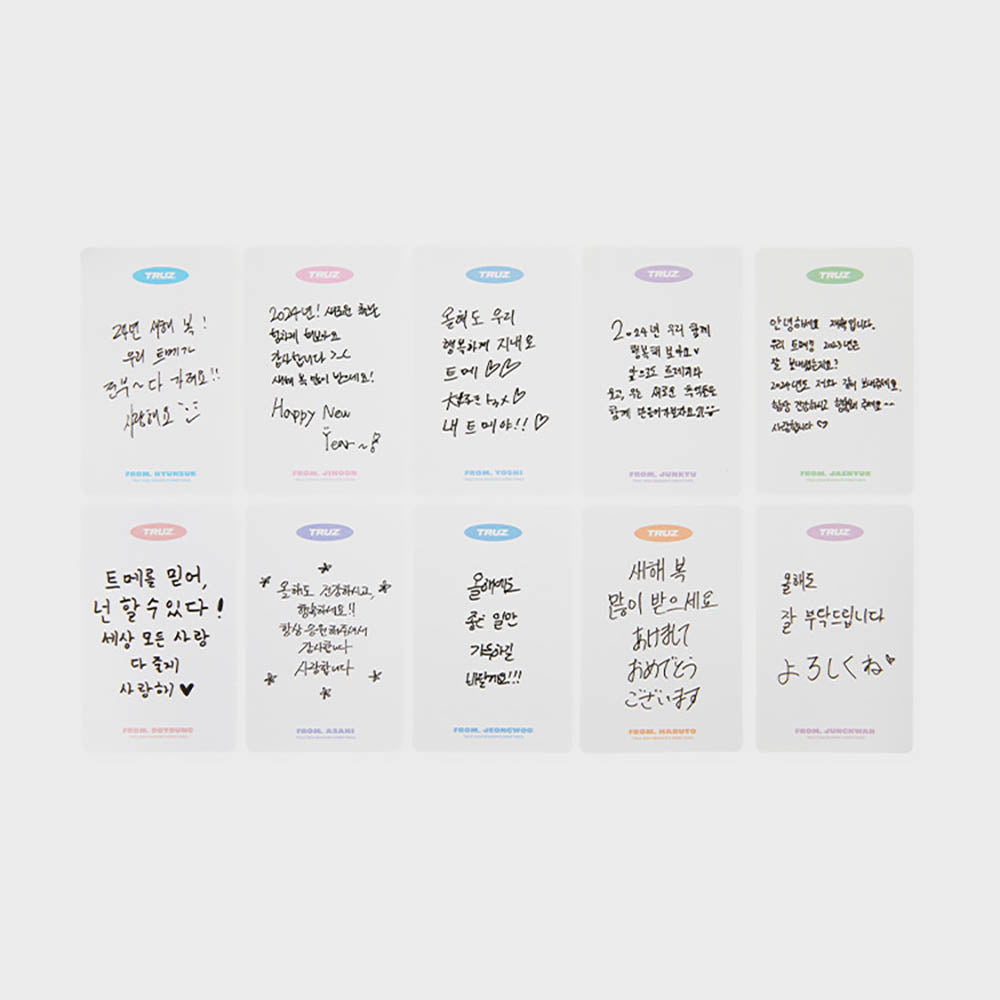 TRUZ
24년 새해 복!
우리 트메가
전부~다 가져요!!
사랑해요
FROM. HYUNSUK
TRUZ
2024년! 새로운
힘차게 해보아요
감사합니다 >.<
새해 복 많이 받으세요!
Happy New
Year~
FROM. JIHOON
TRUZ
올해도 우리
행복하게 지내요
트메 ♡♡
내 트메야!! ♡
FROM. YOSHI
TRUZ
2024년 우리 함께
행복해 보아요♥
앞으로도 트레저와
함께 만들어가보자요
FROM. JUNKYU
TRUZ
안녕하세요 재혁입니다.
우리 트메들 2023년은
잘 보내셨는지요?
2024년도 저와 같이 보내주세요.
항상 건강하시고 행복해 주세요~~
사랑합니다 ♡
FROM. JAEHYUK
TRUZ
트메를 믿어,
넌 할 수 있다!
세상 모든 사랑
다 줄게
사랑해 ♥
FROM. DOYOUNG
TRUZ
올해도 건강하시고,
행복하세요!!
항상 응원해주셔서
감사합니다
사랑합니다
FROM. ASAHI
TRUZ
올해에도
좋은 일만
가득하길
바랄게요!!!
FROM. JEONGWOO
TRUZ
새해 복
많이 받으세요
あけまして
おめでとう
ございます
FROM. HARUTO
TRUZ
올해도
잘 부탁드립니다
よろしくね♥
FROM. JUNGHWAN